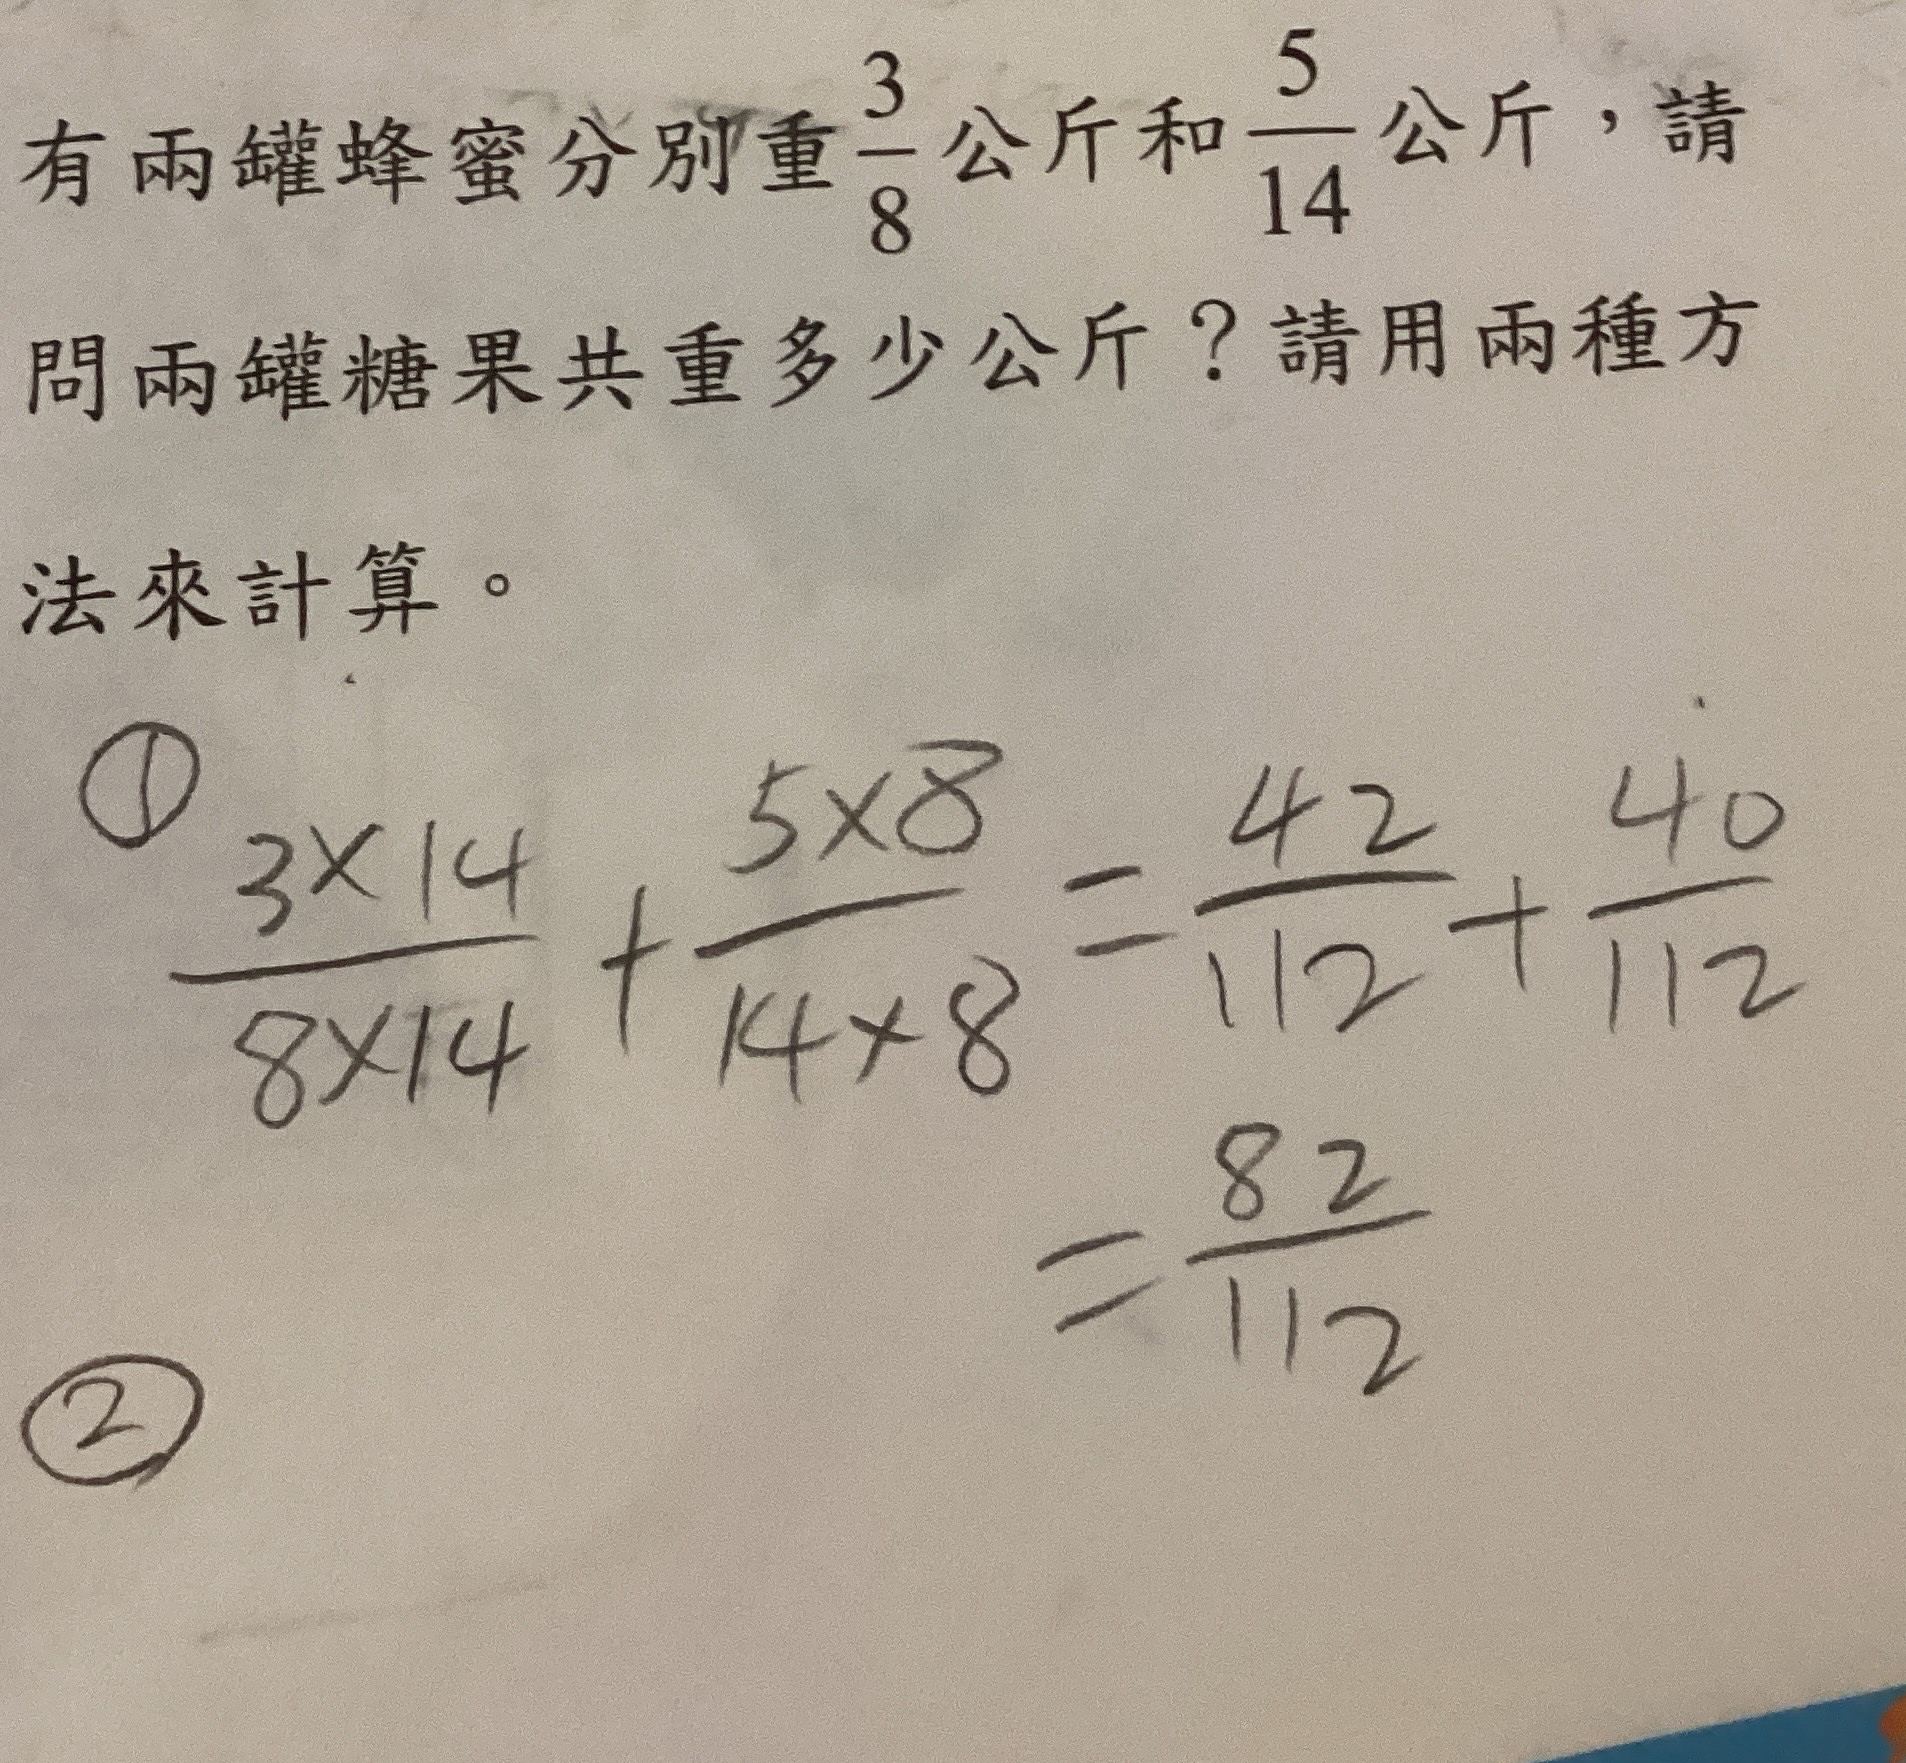 有兩罐蜂蜜分別重3/8公斤和5/14公斤，請
問兩罐糖果共重多少公斤？請用兩種方
法來計算。
① 3×14/8×14 + 5×8/14×8 = 42/112 + 40/112
= 82/112
②